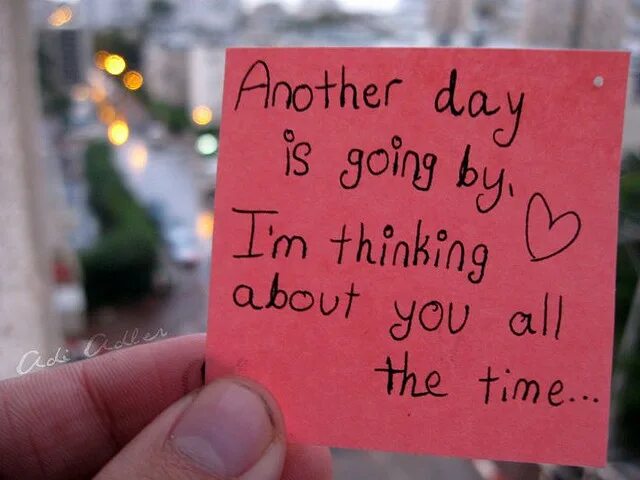 Another day
is going by,
I'm thinking
about you all
the time...
Adi Adler